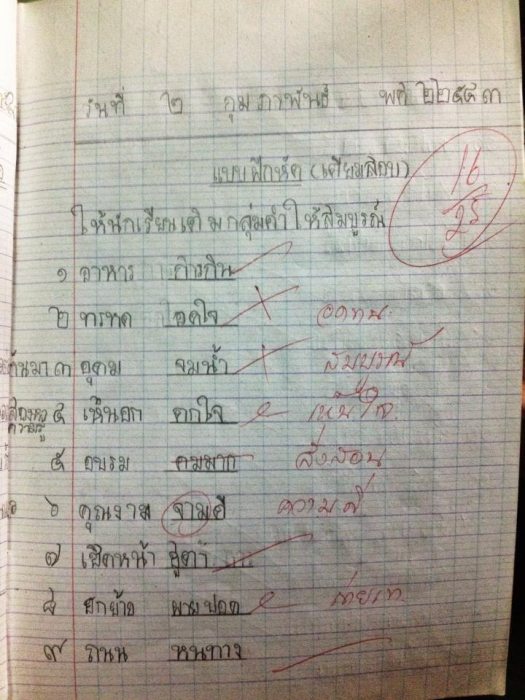 วันที่ ๒ กุมภาพันธ์ พศ ๒๕๕๓
แบบฝึกหัด (เตรียมสอบ) 16/25
ให้นักเรียนเติมกลุ่มคำให้สมบูรณ์
๑ อาหาร การกิน
๒ ทรหด อดใจ อดทน
๓ อุดม จมน้ำ สมบูรณ์
๔ เห็นอก ตกใจ เห็นใจ
๕ อบรม คมมาก สั่งสอน
๖ คุณงาม จามดี ความดี
๗ เชิดหน้า ชูตา
๘ ยักย้าย ถ่ายเท
๙ ถนน หนทาง